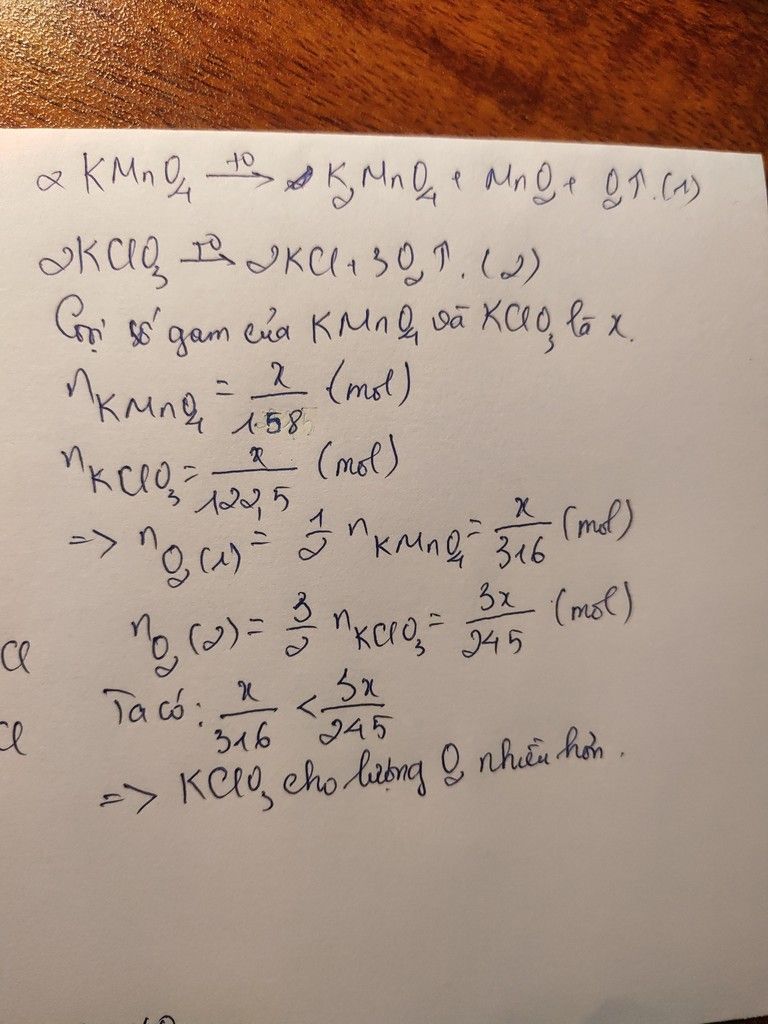 2 KMnO₄ —t⁰→ K₂MnO₄ + MnO₂ + O₂↑. (1)
2KClO₃ —t⁰→ 2KCl + 3O₂↑. (2)
Gọi số gam của KMnO₄ và KClO₃ là x.
n KMnO₄ = x/158 (mol)
n KClO₃ = x/122,5 (mol)
=> n O₂ (1) = 1/2 n KMnO₄ = x/316 (mol)
n O₂ (2) = 3/2 n KClO₃ = 3x/245 (mol)
Cl
Ta có: x/316 < 3x/245
Cl
=> KClO₃ cho lượng O₂ nhiều hơn.